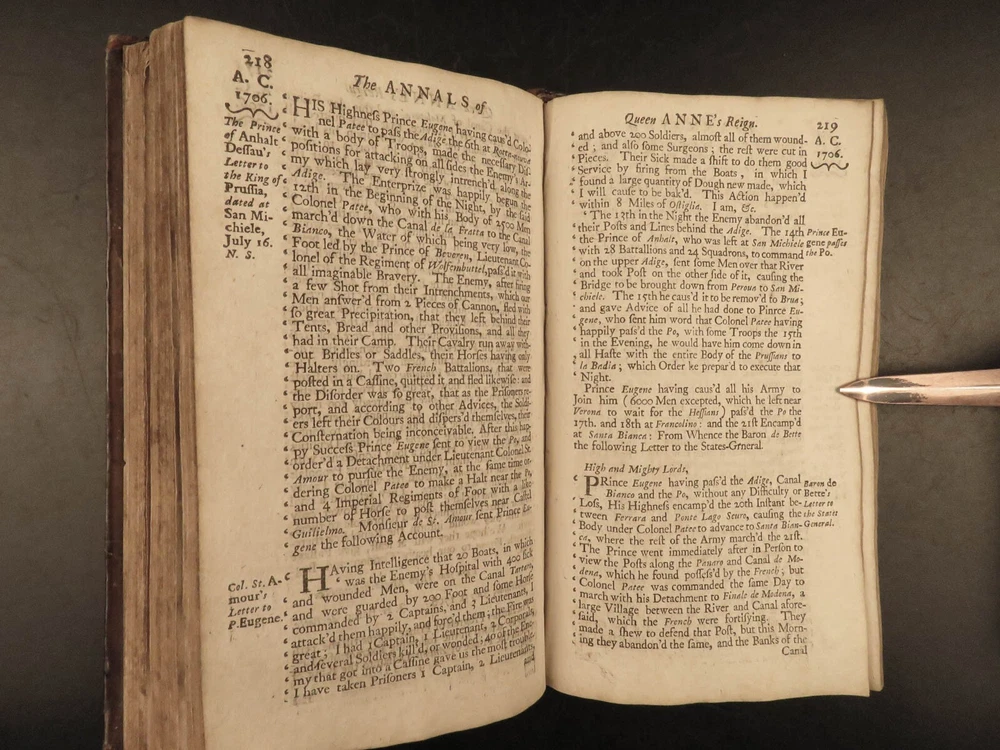 218
The ANNALS of
A. C.
1706.
The Prince
of Anhalt
Dessau's
Letter to
the King of
Prussia,
dated at
San Mi-
chiele,
July 16.
N. S.
‘ HIS Highneſs Prince Eugene having caus'd Colo-
‘ nel Patee to paſs the Adige the 6th at Rotta-nuova
‘ with a body of Troops, made the neceſſary Diſ-
‘ poſitions for attacking on all ſides the Enemy's Ar-
‘ my which lay very ſtrongly intrench'd along the
‘ Adige. The Enterprize was happily begun the
‘ 12th in the Beginning of the Night, by the ſaid
‘ Colonel Patee, who with his Body of 2500 Men
‘ march'd down the Canal de la Fratta to the Canal
‘ Bianco, the Water of which being very low, the
‘ Foot led by the Prince of Beveren, Lieutenant Co-
‘ lonel of the Regiment of Wolfembuttel, paſs'd it with
‘ all imaginable Bravery. The Enemy, after firing
‘ a few Shot from their Intrenchments, which our
‘ Men anſwer'd from 2 Pieces of Cannon, fled with
‘ ſo great Precipitation, that they left behind their
‘ Tents, Bread and other Proviſions, and all they
‘ had in their Camp. Their Cavalry run away with-
‘ out Bridles or Saddles, their Horſes having only
‘ Halters on. Two French Battalions, that were
‘ poſted in a Caſſine, quitted it and fled likewiſe: and
‘ the Diſorder was ſo great, that as the Priſoners re-
‘ port, and according to other Advices, the Soldi-
‘ ers left their Colours and diſpers'd themſelves, their
‘ Conſternation being inconceivable. After this hap-
‘ py Succeſs Prince Eugene ſent to view the Po, and
‘ order'd a Detachment under Lieutenant Colonel St.
‘ Amour to purſue the Enemy, at the ſame time or-
‘ dering Colonel Patee to make a Halt near the Po,
‘ and 4 Imperial Regiments of Foot with a like
‘ number of Horſe to poſt themſelves near Caſtel
‘ Guillielmo. Monſieur de St. Amour ſent Prince Eu-
‘ gene the following Account.
Col. St. A-
mour's
Letter to
P. Eugene.
‘ HAving Intelligence that 20 Boats, in which
‘ was the Enemy's Hospital with 400 ſick
‘ and wounded Men, were on the Canal Tartaro,
‘ and were guarded by 200 Foot and ſome Horſe
‘ commanded by 2 Captains, and 3 Lieutenants, I
‘ attack'd them happily, and forc'd them; the Fire was
‘ great; I had 1 Captain, 1 Lieutenant, 2 Corporals,
‘ and ſeveral Soldiers kill'd, or wonded; 40 of the Ene-
‘ my that got into a Caſſine gave us the moſt trouble.
‘ I have taken Priſoners 1 Captain, 2 Lieutenants,
and
Queen ANNE's Reign.
219
A. C.
1706.
‘ and above 200 Soldiers, almoſt all of them wound-
‘ ed; and alſo ſome Surgeons; the reſt were cut in
‘ Pieces. Their Sick made a ſhift to do them good
‘ Service by firing from the Boats, in which I
‘ found a large quantity of Dough new made, which
‘ I will cauſe to be bak'd. This Action happen'd
‘ within 8 Miles of Oſtiglia. I am, &c.
‘ The 13th in the Night the Enemy abandon'd all
‘ their Poſts and Lines behind the Adige. The 14th
‘ the Prince of Anhalt, who was left at San Michiele
‘ with 28 Battallions and 24 Squadrons, to command
‘ on the upper Adige, ſent ſome Men over that River
‘ and took Poſt on the other ſide of it, cauſing the
‘ Bridge to be brought down from Peroue to San Mi-
‘ chiele. The 15th he caus'd it to be remov'd to Brua;
‘ and gave Advice of all he had done to Pinrce Eu-
‘ gene, who ſent him word that Colonel Patee having
‘ happily paſs'd the Po, with ſome Troops the 15th
‘ in the Evening, he would have him come down in
‘ all Haſte with the entire Body of the Pruſſians to
‘ la Badia; which Order he prepar'd to execute that
‘ Night.
Prince Eu-
gene paſſes
the Po.
Prince Eugene having caus'd all his Army to
Join him (6000 Men excepted, which he left near
Verona to wait for the Heſſians) paſs'd the Po the
17th. and 18th at Francolino: and the 21ſt Encamp'd
at Santa Bianca: From Whence the Baron de Bette
the following Letter to the States-General.
High and Mighty Lords,
‘ PRince Eugene having paſs'd the Adige, Canal
‘ Bianco and the Po, without any Difficulty or
‘ Loſs, His Highneſs encamp'd the 20th Inſtant be-
‘ tween Ferrara and Ponte Lago Scuro, cauſing the
‘ Body under Colonel Patee to advance to Santa Bian-
‘ ca, where the reſt of the Army march'd the 21ſt.
‘ The Prince went immediately after in Perſon to
‘ view the Poſts along the Panaro and Canal de Mo-
‘ dena, which he found poſſeſs'd by the French; but
‘ Colonel Patee was commanded the ſame Day to
‘ march with his Detachment to Finale de Modena, a
‘ large Village between the River and Canal afore-
‘ ſaid, which the French were fortifying. They
‘ made a ſhew to defend that Poſt, but this Morn-
‘ ing they abandon'd the ſame, and the Banks of the
Canal
Baron de
Bette's
Letter to
the States
General.